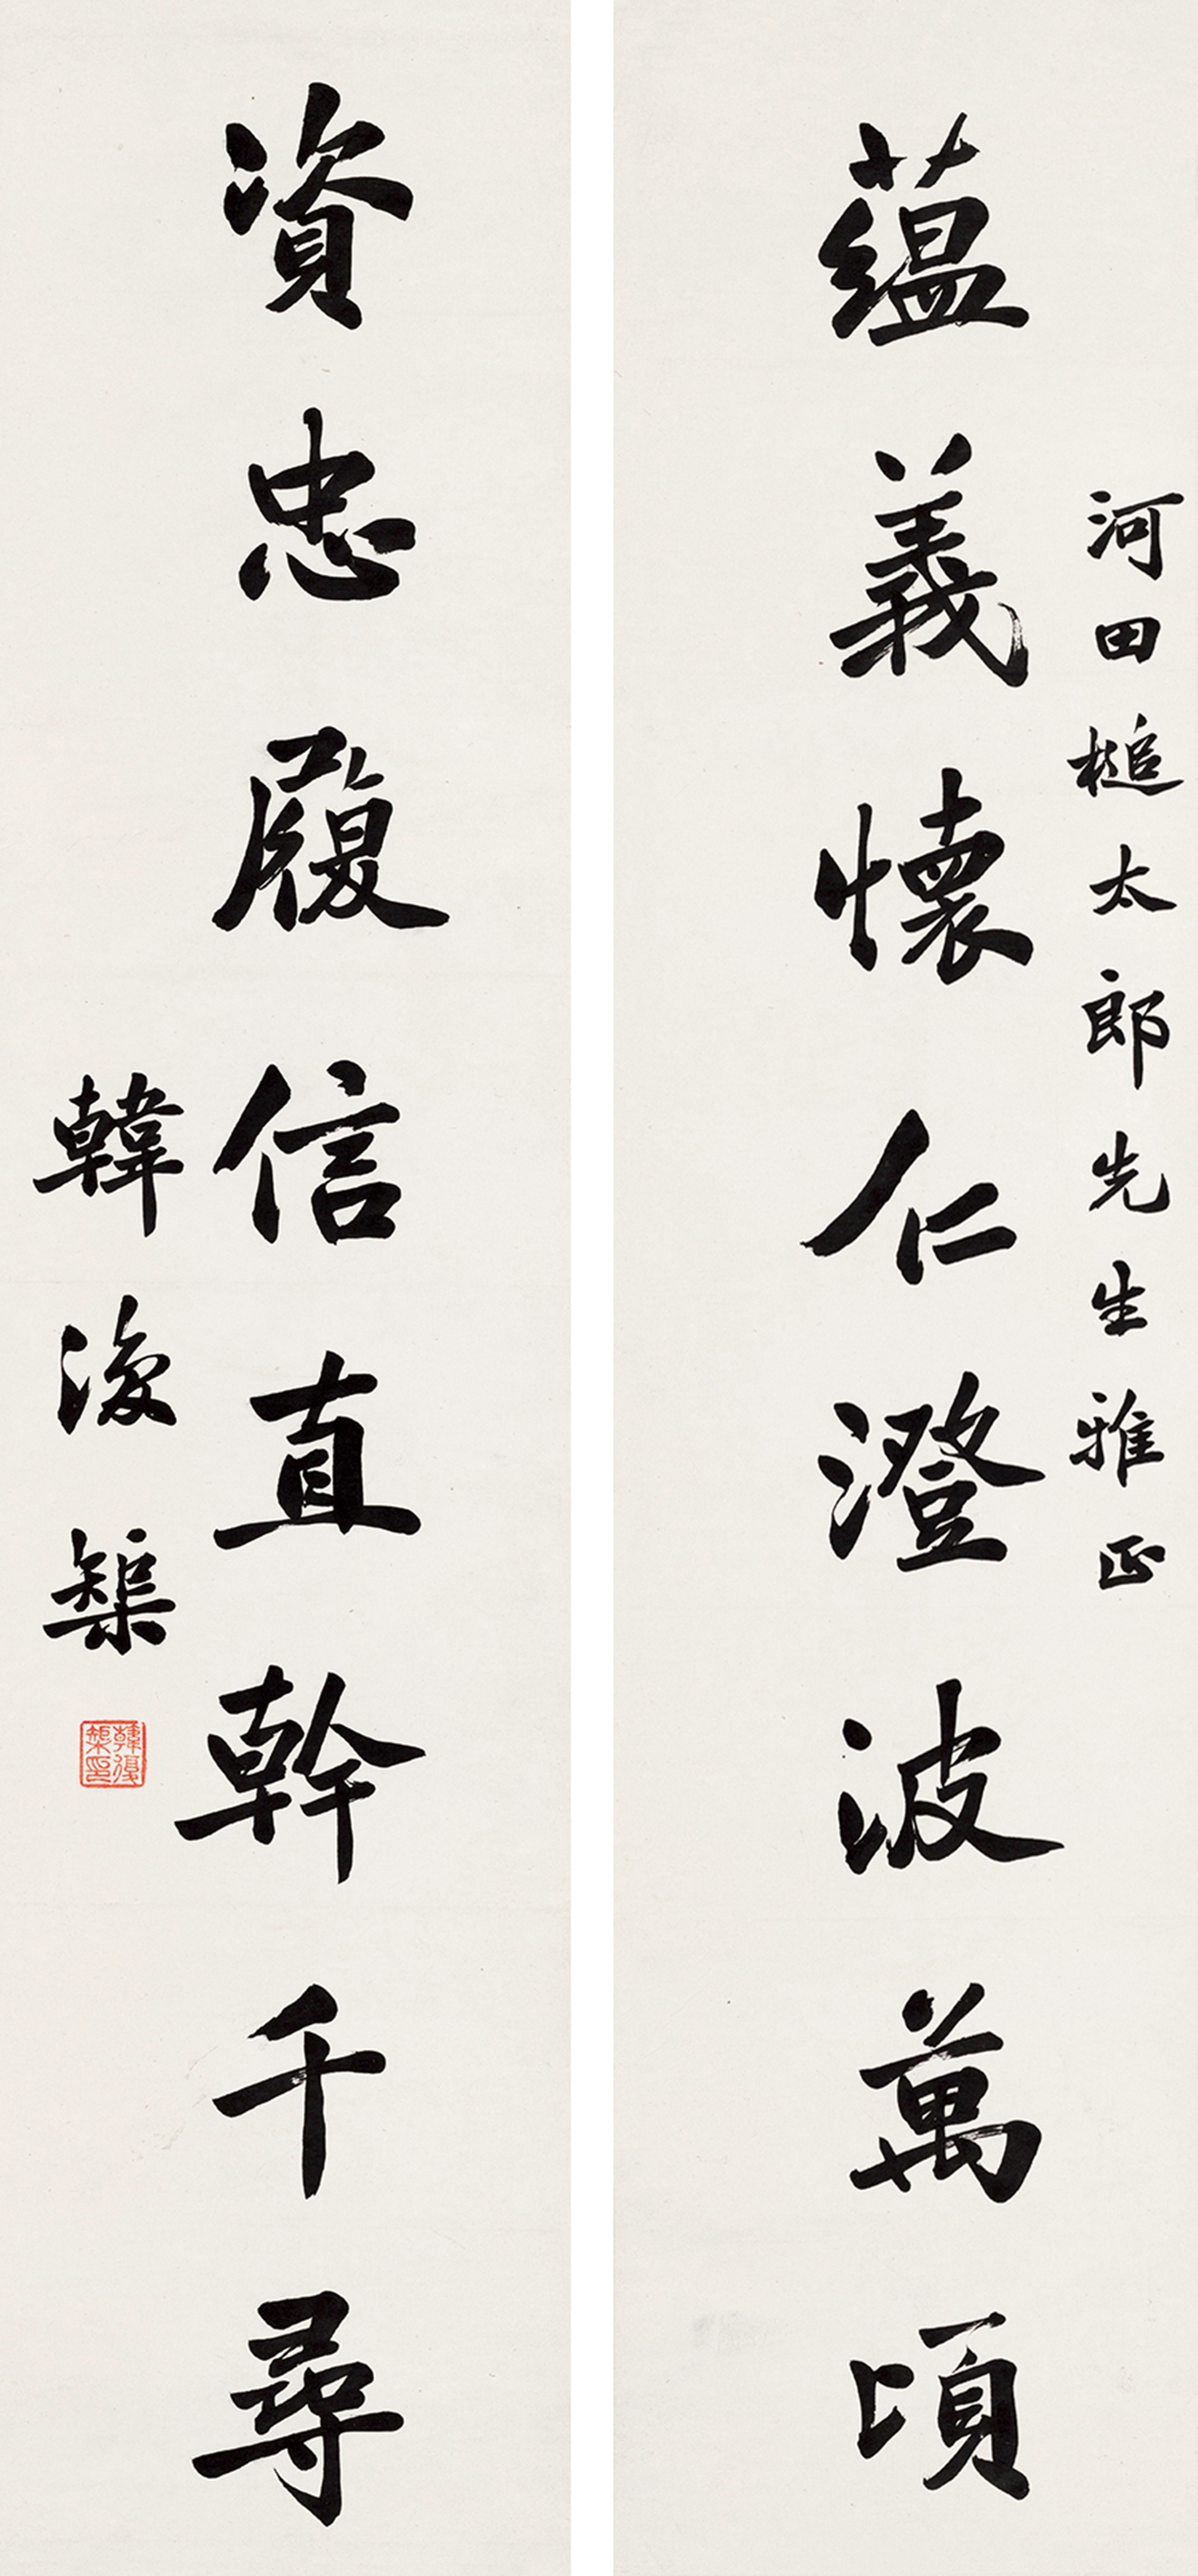 河田槌太郎先生雅正
蕴義懷仁澄波萬頃
資忠履信直幹千尋
韓復榘
韓復榘印